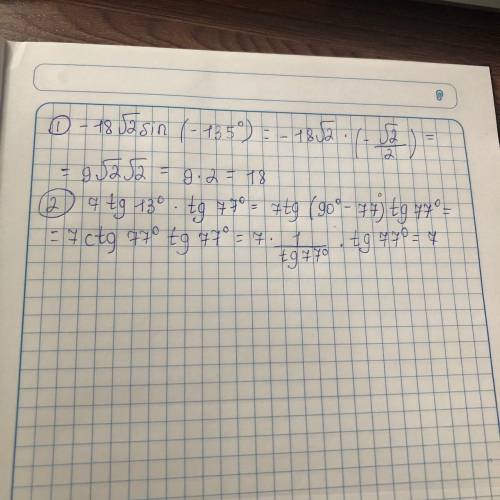 ① - 18√2 sin (- 135°) = - 18√2 · (- √2/2) =
= 9√2√2 = 9 · 2 = 18
② 7 tg 13° · tg 77° = 7tg (90° - 77°) tg 77° =
= 7 ctg 77° tg 77° = 7 · 1/tg77° · tg 77° = 7